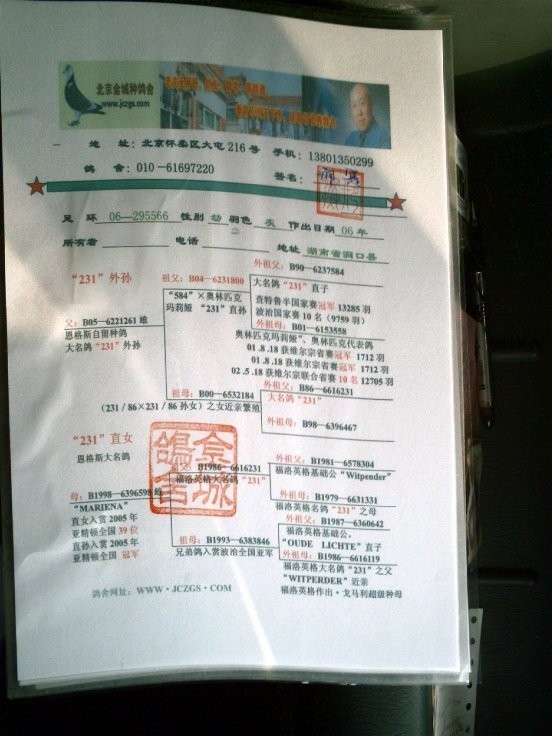 北京金城种鸽舍
www.jczgs.com
地 址：北京怀柔区大屯 216 号 手机：13801350299
鸽 舍：010－61697220 签名：
足 环 06—295566 性别 幼 羽色 灰 作出日期 06 年
所有者 电话 地址 湖南省洞口县
“231”外孙
父：B05—6221261 雄
恩格斯自留种鸽
大名鸽“231”外孙
祖父：B04—6231800
“584”×奥林匹克
玛莉娅 “231”直孙
外祖父：B90—6237584
大名鸽“231”直子
查特鲁半国家赛冠军 13285 羽
波治国家赛 10 名（9759 羽）
外祖母：B01—6153558
奥林匹克玛莉娅”、奥林匹克代表鸽
01 .8 .18 获维尔宗省赛冠军 1712 羽
01 .8 .18 获维尔宗省赛冠军 1712 羽
02 .5 .18 获维尔宗联合省赛 10 名 12705 羽
祖母：B00—6532184
（231 / 86×231 / 86 孙女）之女近亲繁殖
外祖父：B86—6616231
大名鸽“231”
外祖母：B98—6396467
“231”直女
恩格斯大名鸽
母：B1998—6396598 雌
“MARIENA”
直女入赏 2005 年
亚精顿全国 39 位
直孙入赏 2005 年
亚精顿全国 冠军
B1986—6616231
福洛英格大名鸽“231”
外祖父：B1981—6578304
福洛英格基础公“Witpender”
外祖母：B1979—6631331
福洛英格名鸽“231”之母
祖母：B1993—6383846
兄弟鸽入赏波治全国亚军
外祖父：B1987—6360642
福洛英格基础公，
“OUDE LICHTE”直子
外祖母：B1986—6616119
福洛英格大名鸽“231”之父
“WITPERDER”近亲
福洛英格作出·戈马利超级种母
鸽舍网址：WWW·JCZGS·COM
金城
鸽舍